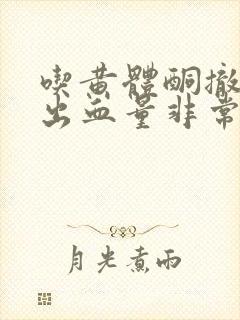 喫黃體酮撤
出血量非常
月光煮雨